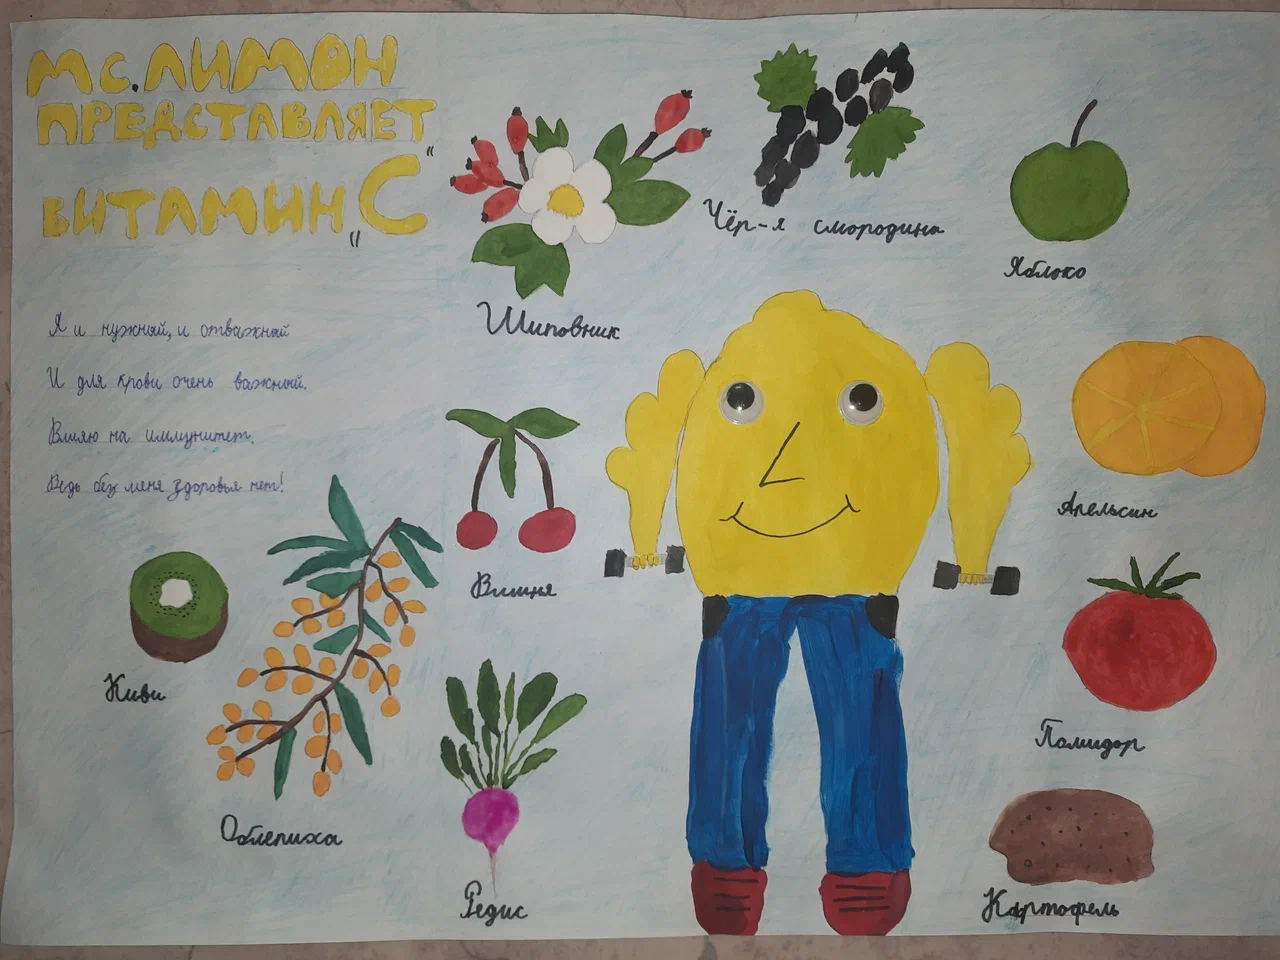 МС. ЛИМОН
ПРЕДСТАВЛЯЕТ
ВИТАМИН "С"
Я и нужный, и отважный
И для крови очень важный.
Влияю на иммунитет,
Ведь без меня здоровья нет!
Шиповник
Чёр-я смородина
Яблоко
Вишня
Апельсин
Киви
Облепиха
Редис
Помидор
Картофель